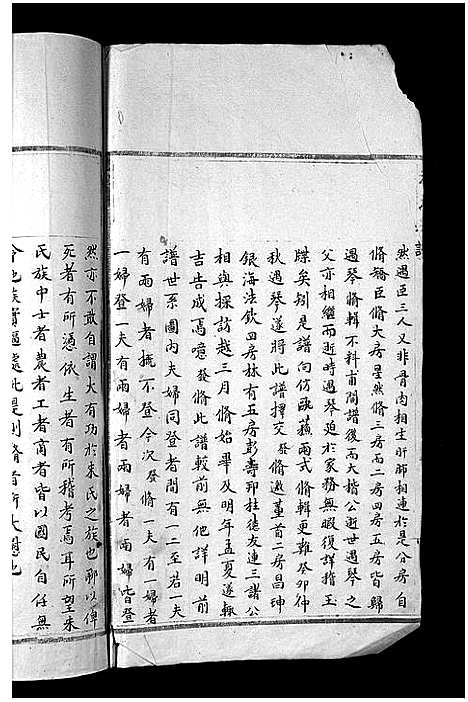 然遇臣三人又非骨肉相生肝肺相連於是分房自
脩豬臣脩大房星然脩三房而二房四房五房皆歸
遇琴脩輯不料甫閱譜後而大楷公逝世遇琴之
父亦相繼而逝時遇琴迫於家務無暇復詳指玉
牒矣剜是譜向仿歐蘓兩式脩輯更難癸卯仲
秋遇琴遂將此譜擇交發脩邀董首二房昌珅
銀海法欽四房林有五房彭壽邦柱德友連三諸公
相與採訪越三月脩始畢及明年孟夏遂輙
吉告成焉噫發脩此譜較前無他詳明前
譜世系圖內夫婦同登者間有一二至若一夫
有兩婦者概不登今次發脩一夫有一婦者
一婦登一夫有兩婦者兩婦皆登
然亦不敢自謂大有功於朱氏之族也聊以俾
死者有所憑依生者有所稽考焉耳所望朱
民族中士者農者工者商者皆以國民自任無